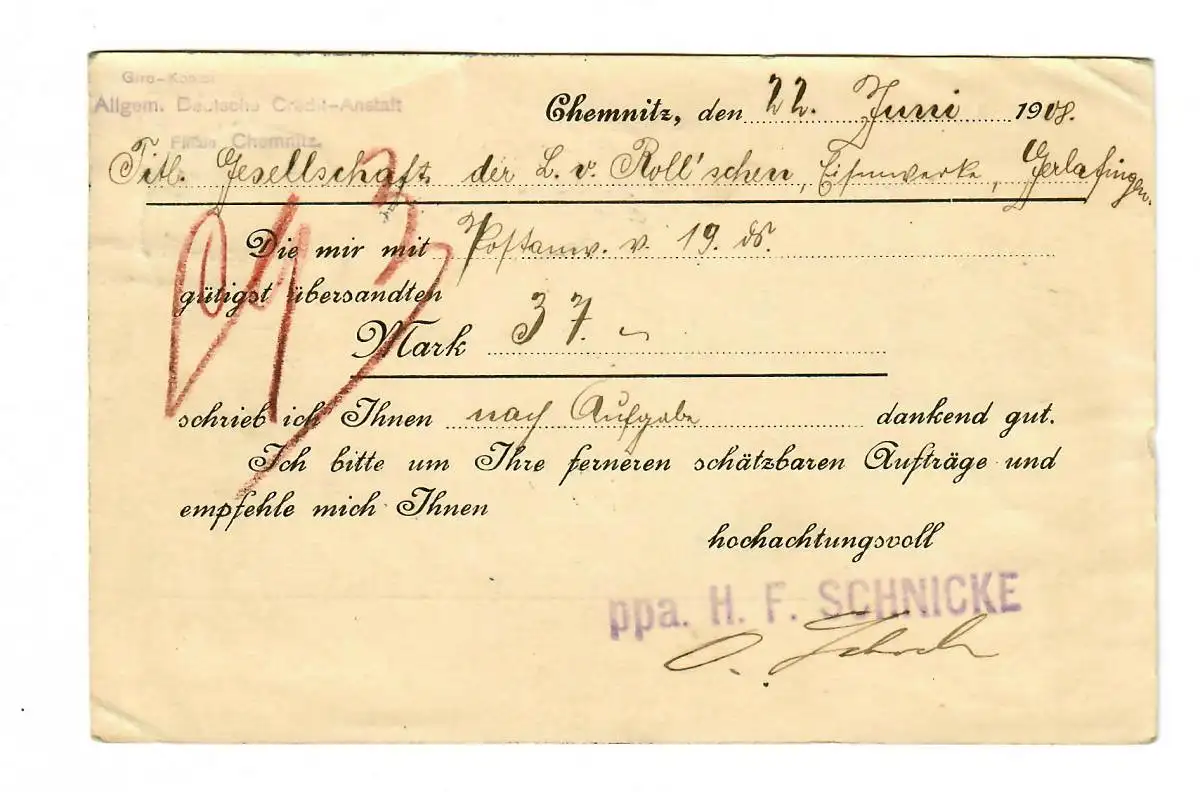 Giro-Konto
Allgem. Deutsche Credit-Anstalt
Filiale Chemnitz.
Chemnitz, den 22. Juni 1908.
Titl. Gesellschaft der L. v. Roll'schen Eisenwerke, Gerlafingen.
Die mir mit Postanw. v. 19. ds.
gütigst übersandten
Mark 37.–
schrieb ich Ihnen nach Aufgabe dankend gut.
Ich bitte um Ihre ferneren schätzbaren Aufträge und
empfehle mich Ihnen
hochachtungsvoll
ppa. H. F. SCHNICKE